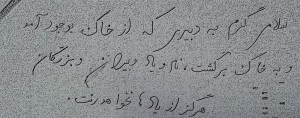 سلامی گرم به دبیری که از خاک بوجود آمد
و به خاک برگشت، نام و یاد دبیران و بزرگان
هرگز از یادها نخواهد رفت.